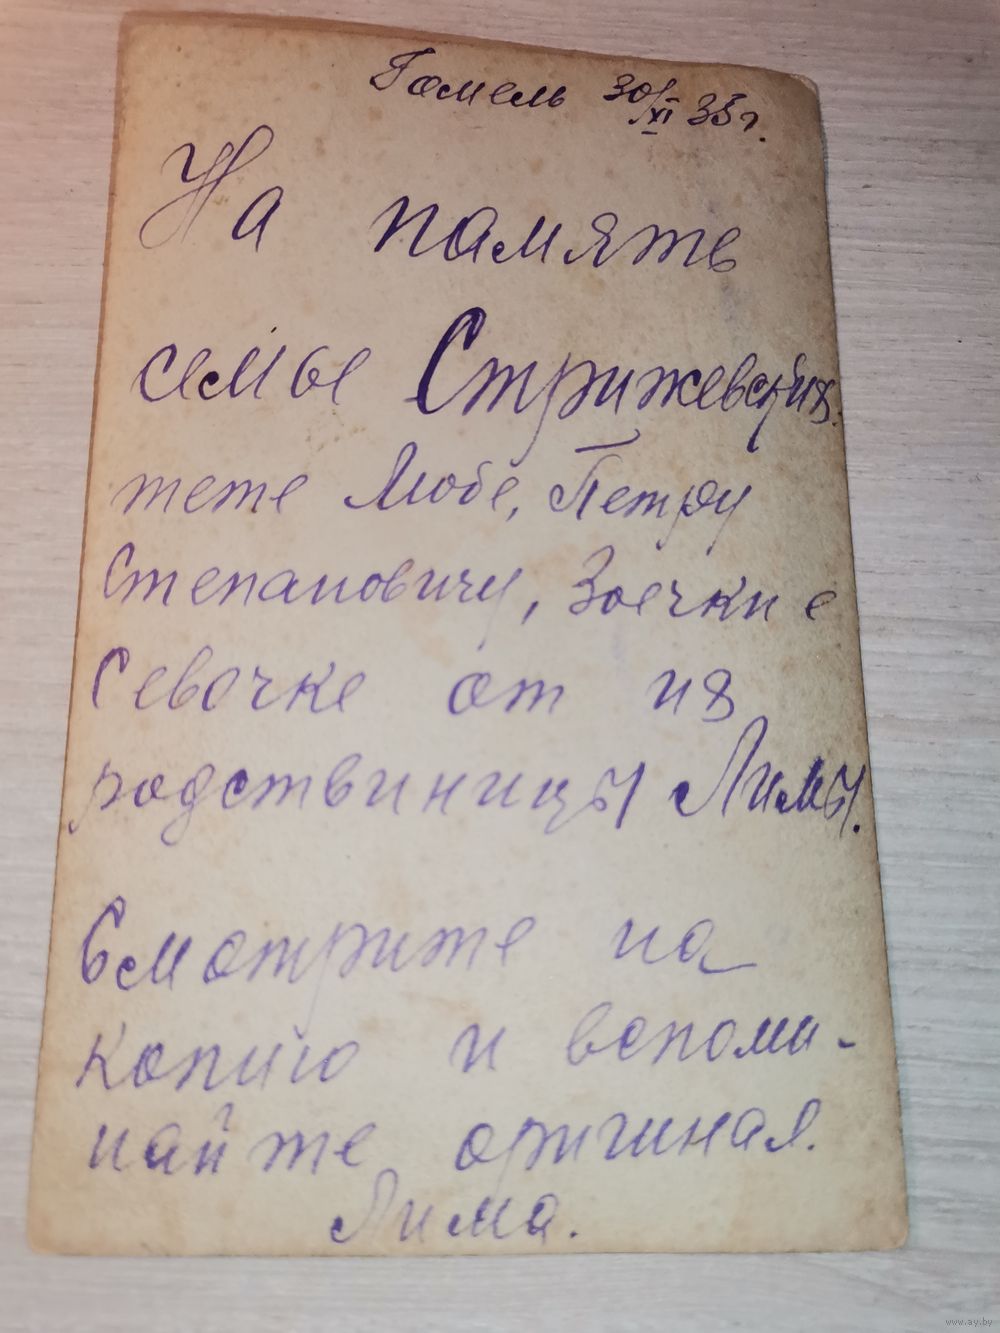 Гомель 30/XI 33г.
На память
семье Стрижевских
тете Любе, Петру
Степановичу, Зоечки е
Севочке от их
родствиницы Лимы.
Смотрите на
копию и вспоми-
найте оригинал.
Лима.
www.ay.by